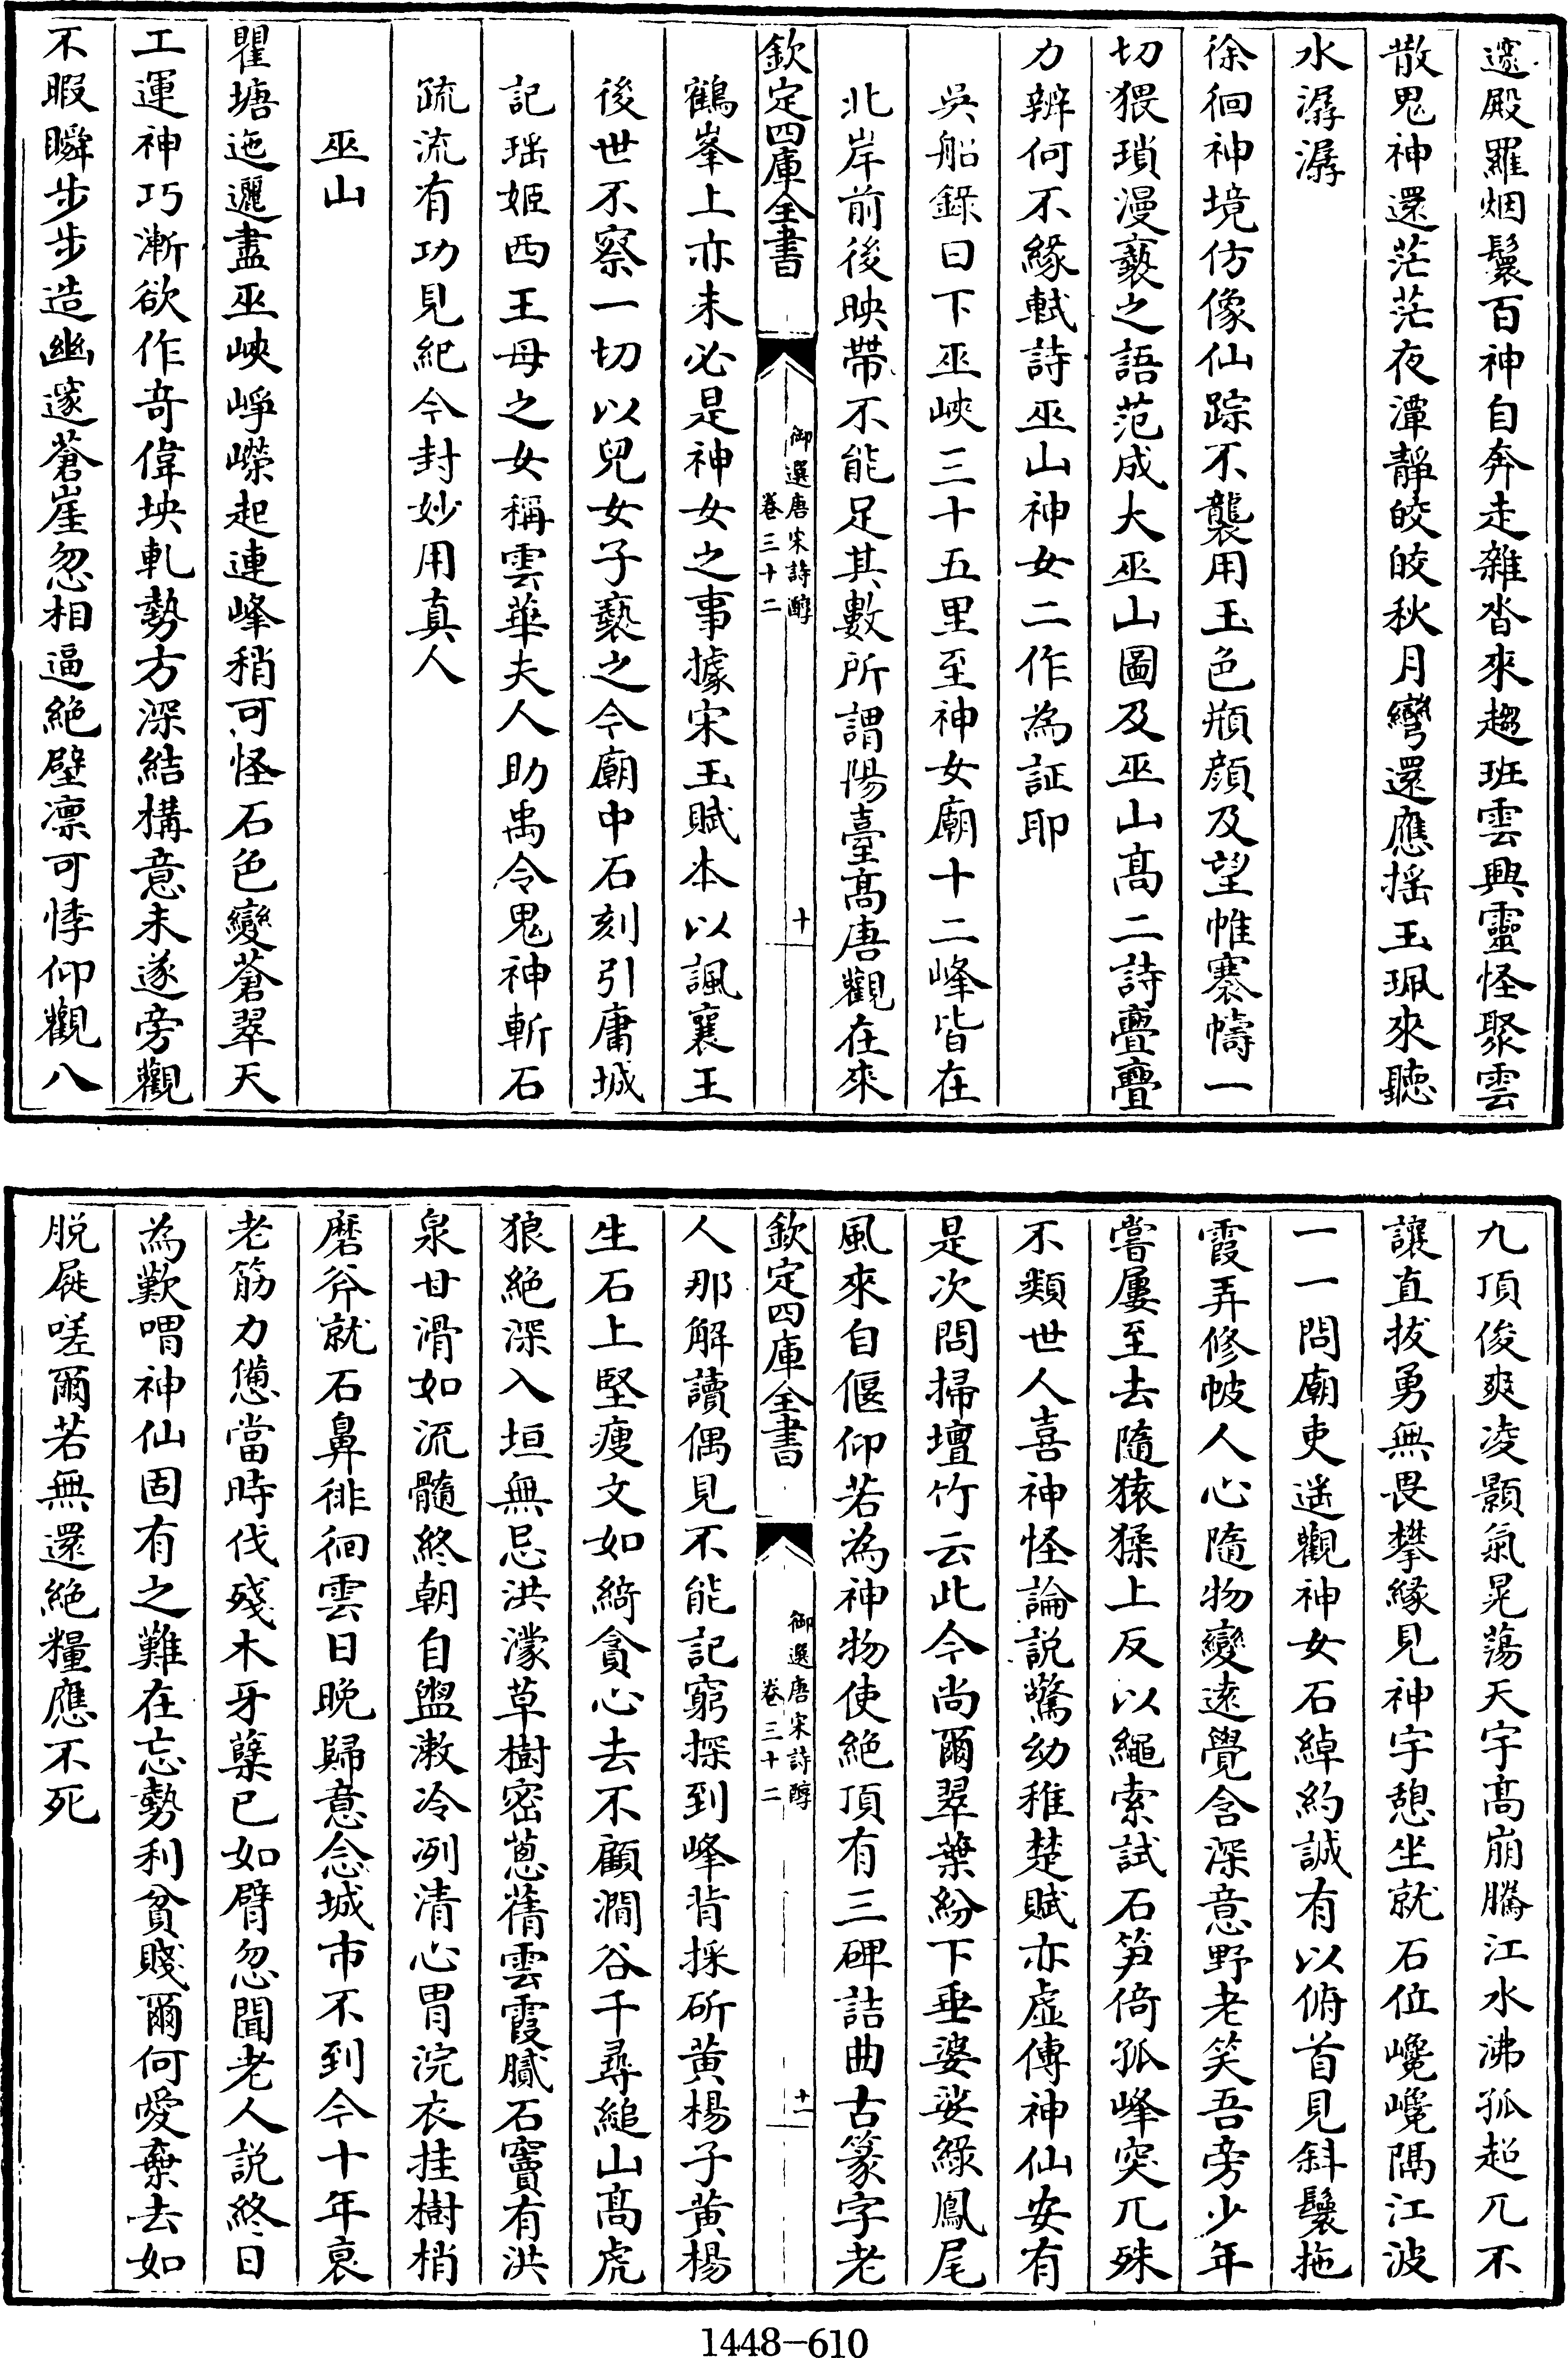 邃殿羅烟鬟百神自奔走雜沓來趨班雲興靈怪聚雲
散鬼神還茫茫夜潭靜皎皎秋月彎還應揺玉珮來聽
水潺潺
徐徊神境仿像仙踪不襲用玉色頩顔及望帷褰幬一
切猥瑣漫䙝之語范成大巫山圖及巫山髙二詩亹亹
力辨何不緣軾詩巫山神女二作為証耶
吳船錄曰下巫峽三十五里至神女廟十二峰皆在
北岸前後映帶不能足其數所謂陽臺髙唐觀在來
欽定四庫全書
御選唐宋詩醇
卷三十二
十
鶴峯上亦未必是神女之事據宋玉賦本以諷襄王
後世不察一切以兒女子䙝之今廟中石刻引庸城
記瑶姬西王母之女稱雲華夫人助禹令鬼神斬石
疏流有功見紀今封妙用真人
巫山
瞿塘迤邐盡巫峽崢嶸起連峰稍可怪石色變蒼翠天
工運神巧漸欲作奇偉坱軋勢方深結構意未遂旁觀
不暇瞬步步造幽邃蒼崖忽相逼絶壁凛可悸仰觀八
九頂俊爽凌顥氣晃蕩天宇髙崩騰江水沸孤超兀不
讓直拔勇無畏攀緣見神宇憩坐就石位巉巉隔江波
一一問廟吏遥觀神女石綽約誠有以俯首見斜鬟拖
霞弄修帔人心隨物變逺覺含深意野老笑吾旁少年
嘗屢至去隨猿猱上反以繩索試石笋倚孤峰突兀殊
不類世人喜神怪論説驚幼稚楚賦亦虛傳神仙安有
是次問掃壇竹云此今尚爾翠葉紛下垂婆娑緑鳳尾
風來自偃仰若為神物使絶頂有三碑詰曲古篆字老
欽定四庫全書
御選唐宋詩醇
卷三十二
十一
人那解讀偶見不能記窮探到峰背採斫黄楊子黄楊
生石上堅瘦文如綺貪心去不顧澗谷千尋縋山髙虎
狼絶深入坦無忌洪濛草樹密蔥蒨雲霞膩石竇有洪
泉甘滑如流髓終朝自盥漱冷冽清心胃浣衣挂樹梢
磨斧就石鼻徘徊雲日晚歸意念城市不到今十年衰
老筋力憊當時伐殘木牙蘖已如臂忽聞老人説終日
為歎喟神仙固有之難在忘勢利貧賤爾何愛棄去如
脱屣嗟爾若無還絶糧應不死
1448-610